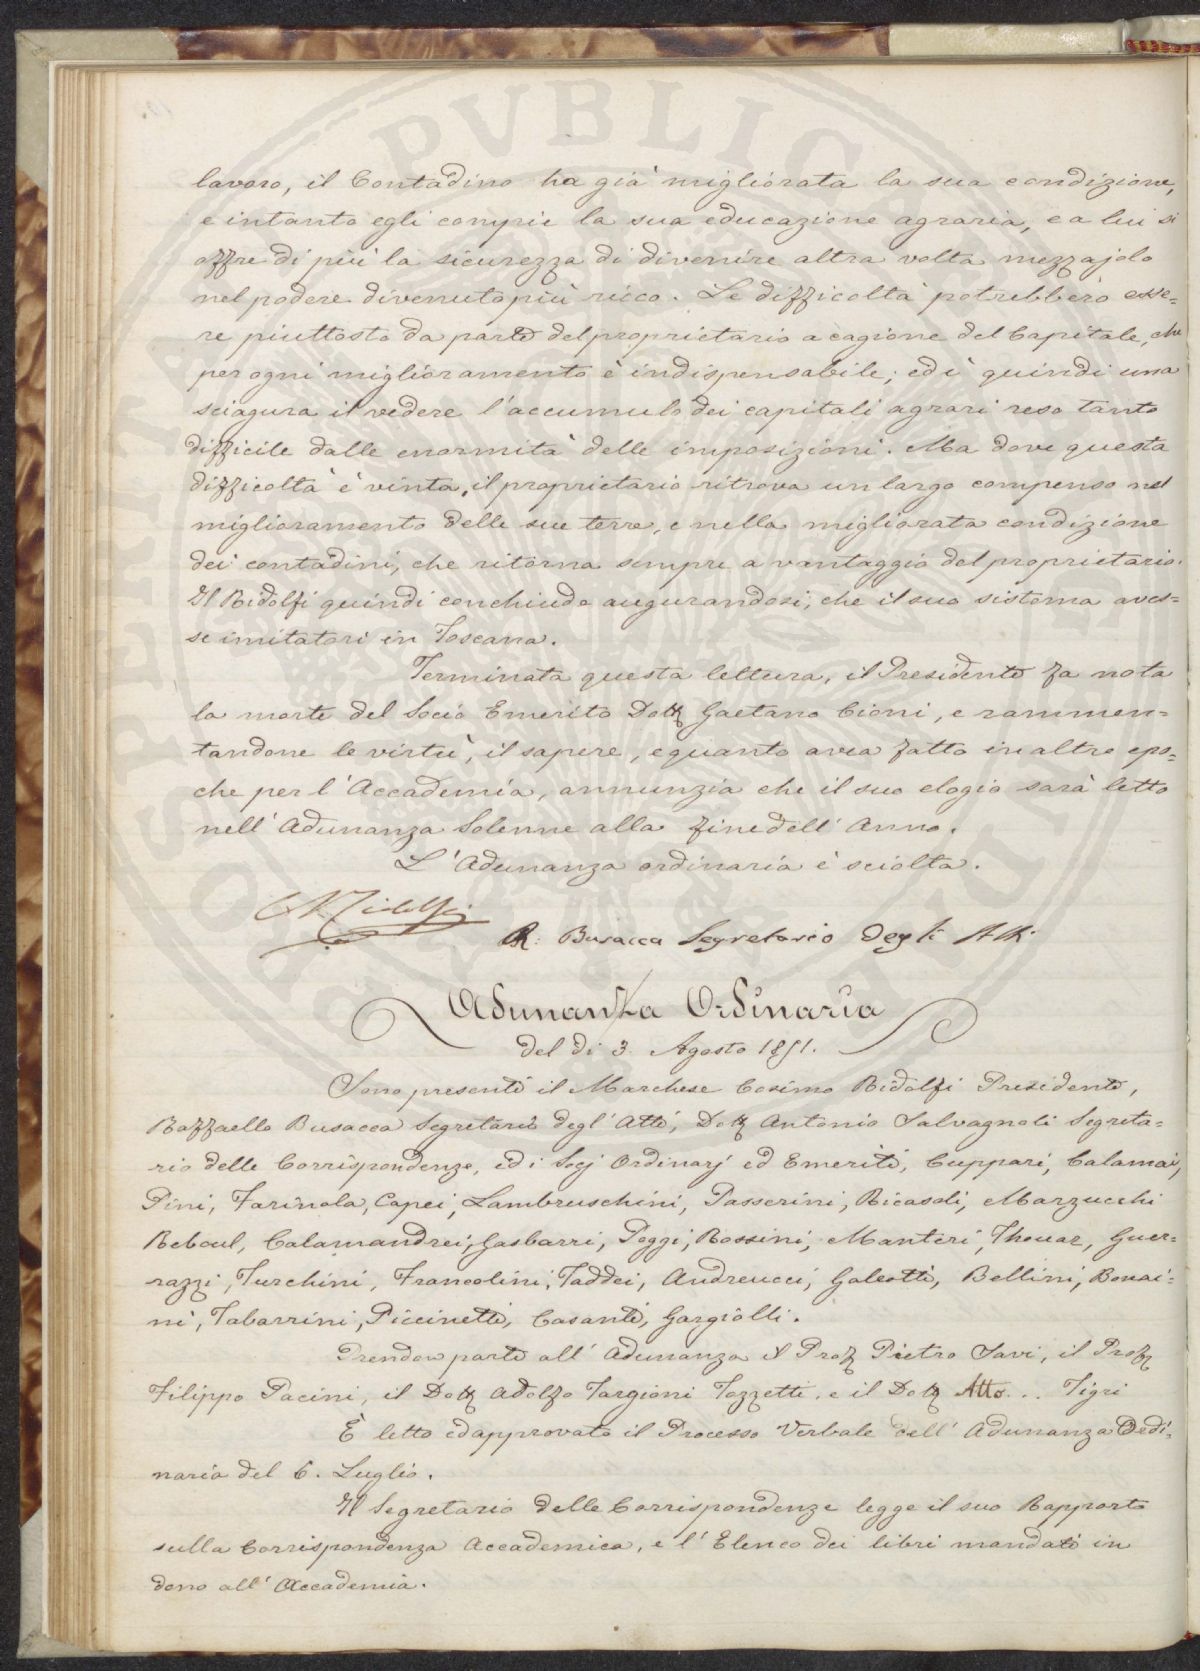 lavoro, il Contadino ha già migliorata la sua condizione,
e intanto egli compie la sua educazione agraria, e a lui si
offre di più la sicurezza di divenire altra volta mezzajolo
nel podere divenuto più ricco. Le difficoltà potrebbero esse=
re piuttosto da parte del proprietario a cagione del Capitale, che
per ogni miglioramento è indispensabile; ed è quindi una
sciagura il vedere l'accumulo dei capitali agrari reso tanto
difficile dalle enormità delle imposizioni. Ma dove questa
difficoltà è vinta, il proprietario ritrova un largo compenso nel
miglioramento delle sue terre, e nella migliorata condizione
dei contadini, che ritorna sempre a vantaggio del proprietario.
Il Ridolfi quindi conchiude augurandosi, che il suo sistema aves=
se imitatori in Toscana.
Terminata questa lettura, il Presidente fa nota
la morte del Socio Emerito Dott Gaetano Cioni, e rammen=
tandone le virtù, il sapere, e quanto avea fatto in altre epo=
che per l'Accademia, annunzia che il suo elogio sarà letto
nell'Adunanza Solenne alla fine dell'Anno.
L'Adunanza ordinaria è sciolta.
C Ridolfi
R: Busacca Segretario degli Atti
Adunanza Ordinaria
del dì 3. Agosto 1851.
Sono presenti il Marchese Cosimo Ridolfi Presidente,
Raffaello Busacca Segretario degl'Atti, Dott Antonio Salvagnoli Segreta=
rio delle Corrispondenze, ed i Socj Ordinarj ed Emeriti, Cuppari, Calamai,
Pini, Farinola, Capei, Lambruschini, Passerini, Ricasoli, Marzucchi
Reboul, Calamandrei, Gasbarri, Poggi, Rossini, Manteri, Thouar, Guer=
razzi, Turchini, Francolini, Taddei, Andreucci, Galeotti, Bellini, Bonai=
ni, Tabarrini, Piccinetti, Casanti, Gargiolli.
Prendon parte all'Adunanza il Prof Pietro Savi, il Prof
Filippo Pacini, il Dott Adolfo Targioni Tozzetti, e il Dott Atto... Tigri
È letto ed approvato il Processo Verbale dell'Adunanza Ordi=
naria del 6. Luglio.
Il Segretario delle Corrispondenze legge il suo Rapporto
sulla Corrispondenza Accademica, e l'Elenco dei libri mandati in
dono all'Accademia.